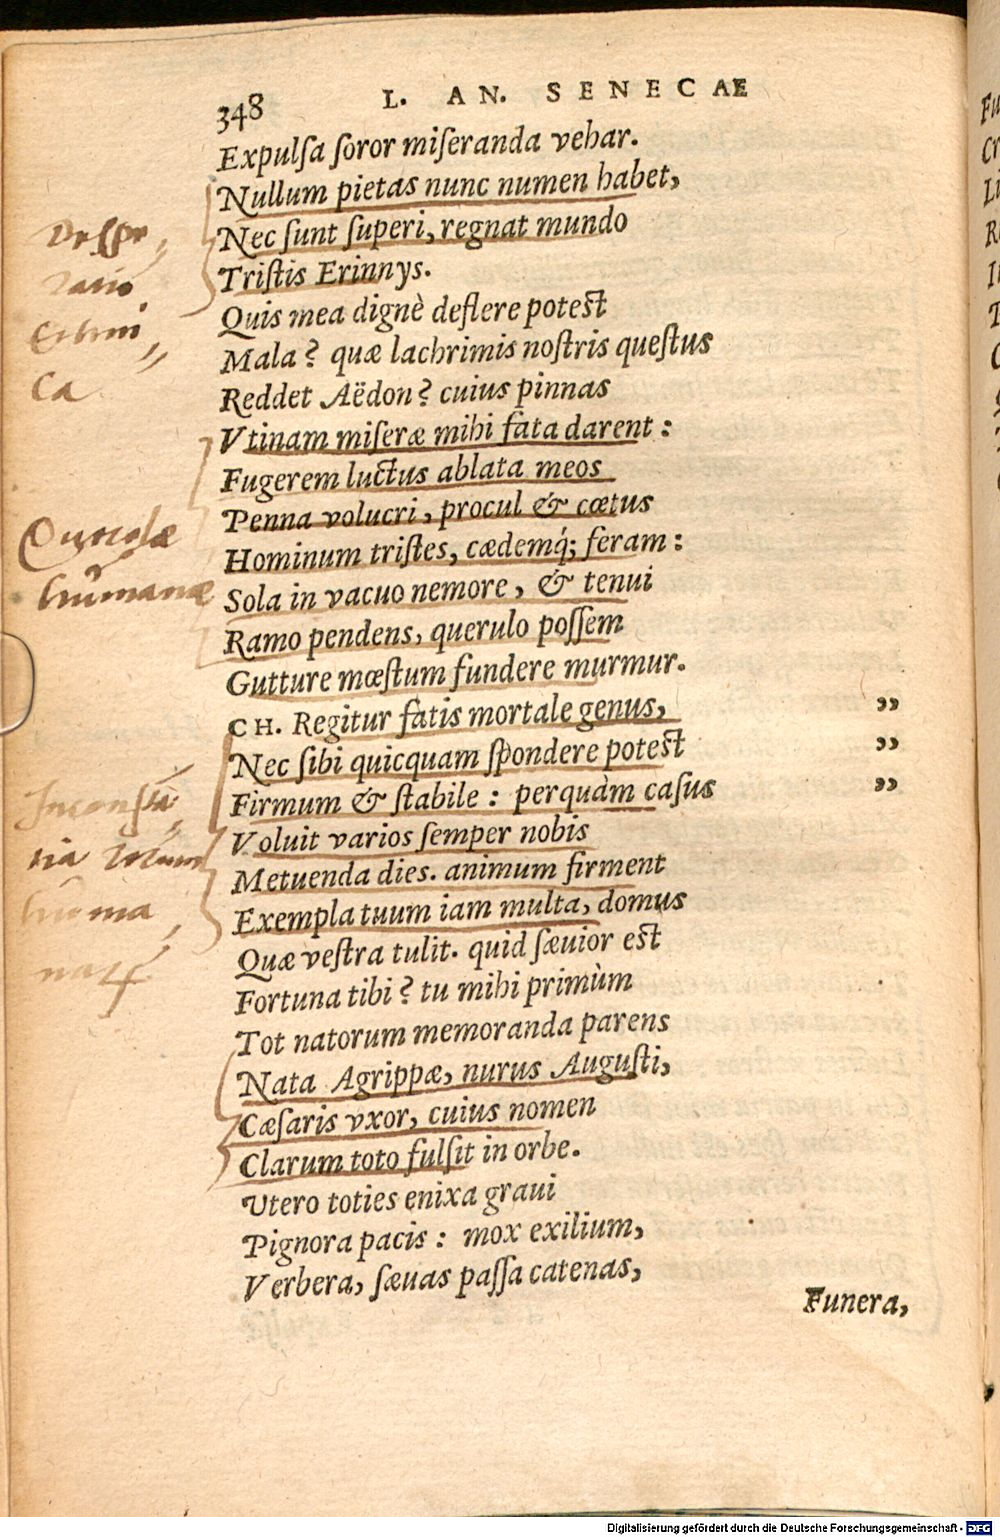 348 L. AN. SENECAE
Expulſa ſoror miſeranda vehar.
Nullum pietas nunc numen habet,
Nec ſunt ſuperi, regnat mundo
Triſtis Erinnys.
Quis mea dignè deflere poteſt
Mala? quæ lachrimis noſtris queſtus
Reddet Aëdon? cuius pinnas
Vtinam miſeræ mihi fata darent:
Fugerem luctus ablata meos
Penna volucri, procul & cœtus
Hominum triſtes, cædemq́; feram:
Sola in vacuo nemore, & tenui
Ramo pendens, querulo poſſem
Gutture mœſtum fundere murmur.
CH. Regitur fatis mortale genus, ”
Nec ſibi quicquam ſpondere poteſt ”
Firmum & ſtabile: perquàm caſus ”
Voluit varios ſemper nobis
Metuenda dies. animum firment
Exempla tuum iam multa, domus
Quæ veſtra tulit. quid ſæuior eſt
Fortuna tibi? tu mihi primùm
Tot natorum memoranda parens
Nata Agrippæ, nurus Auguſti,
Cæſaris vxor, cuius nomen
Clarum toto fulſit in orbe.
Vtero toties enixa graui
Pignora pacis: mox exilium,
Verbera, ſæuas paſſa catenas,
Funera,
Deſpe„
ratio
Ethni„
ca
Querelæ
humanæ
Inconſtā„
tia rerum
huma„
Digitalisierung gefördert durch die Deutsche Forschungsgemeinschaft - DFG